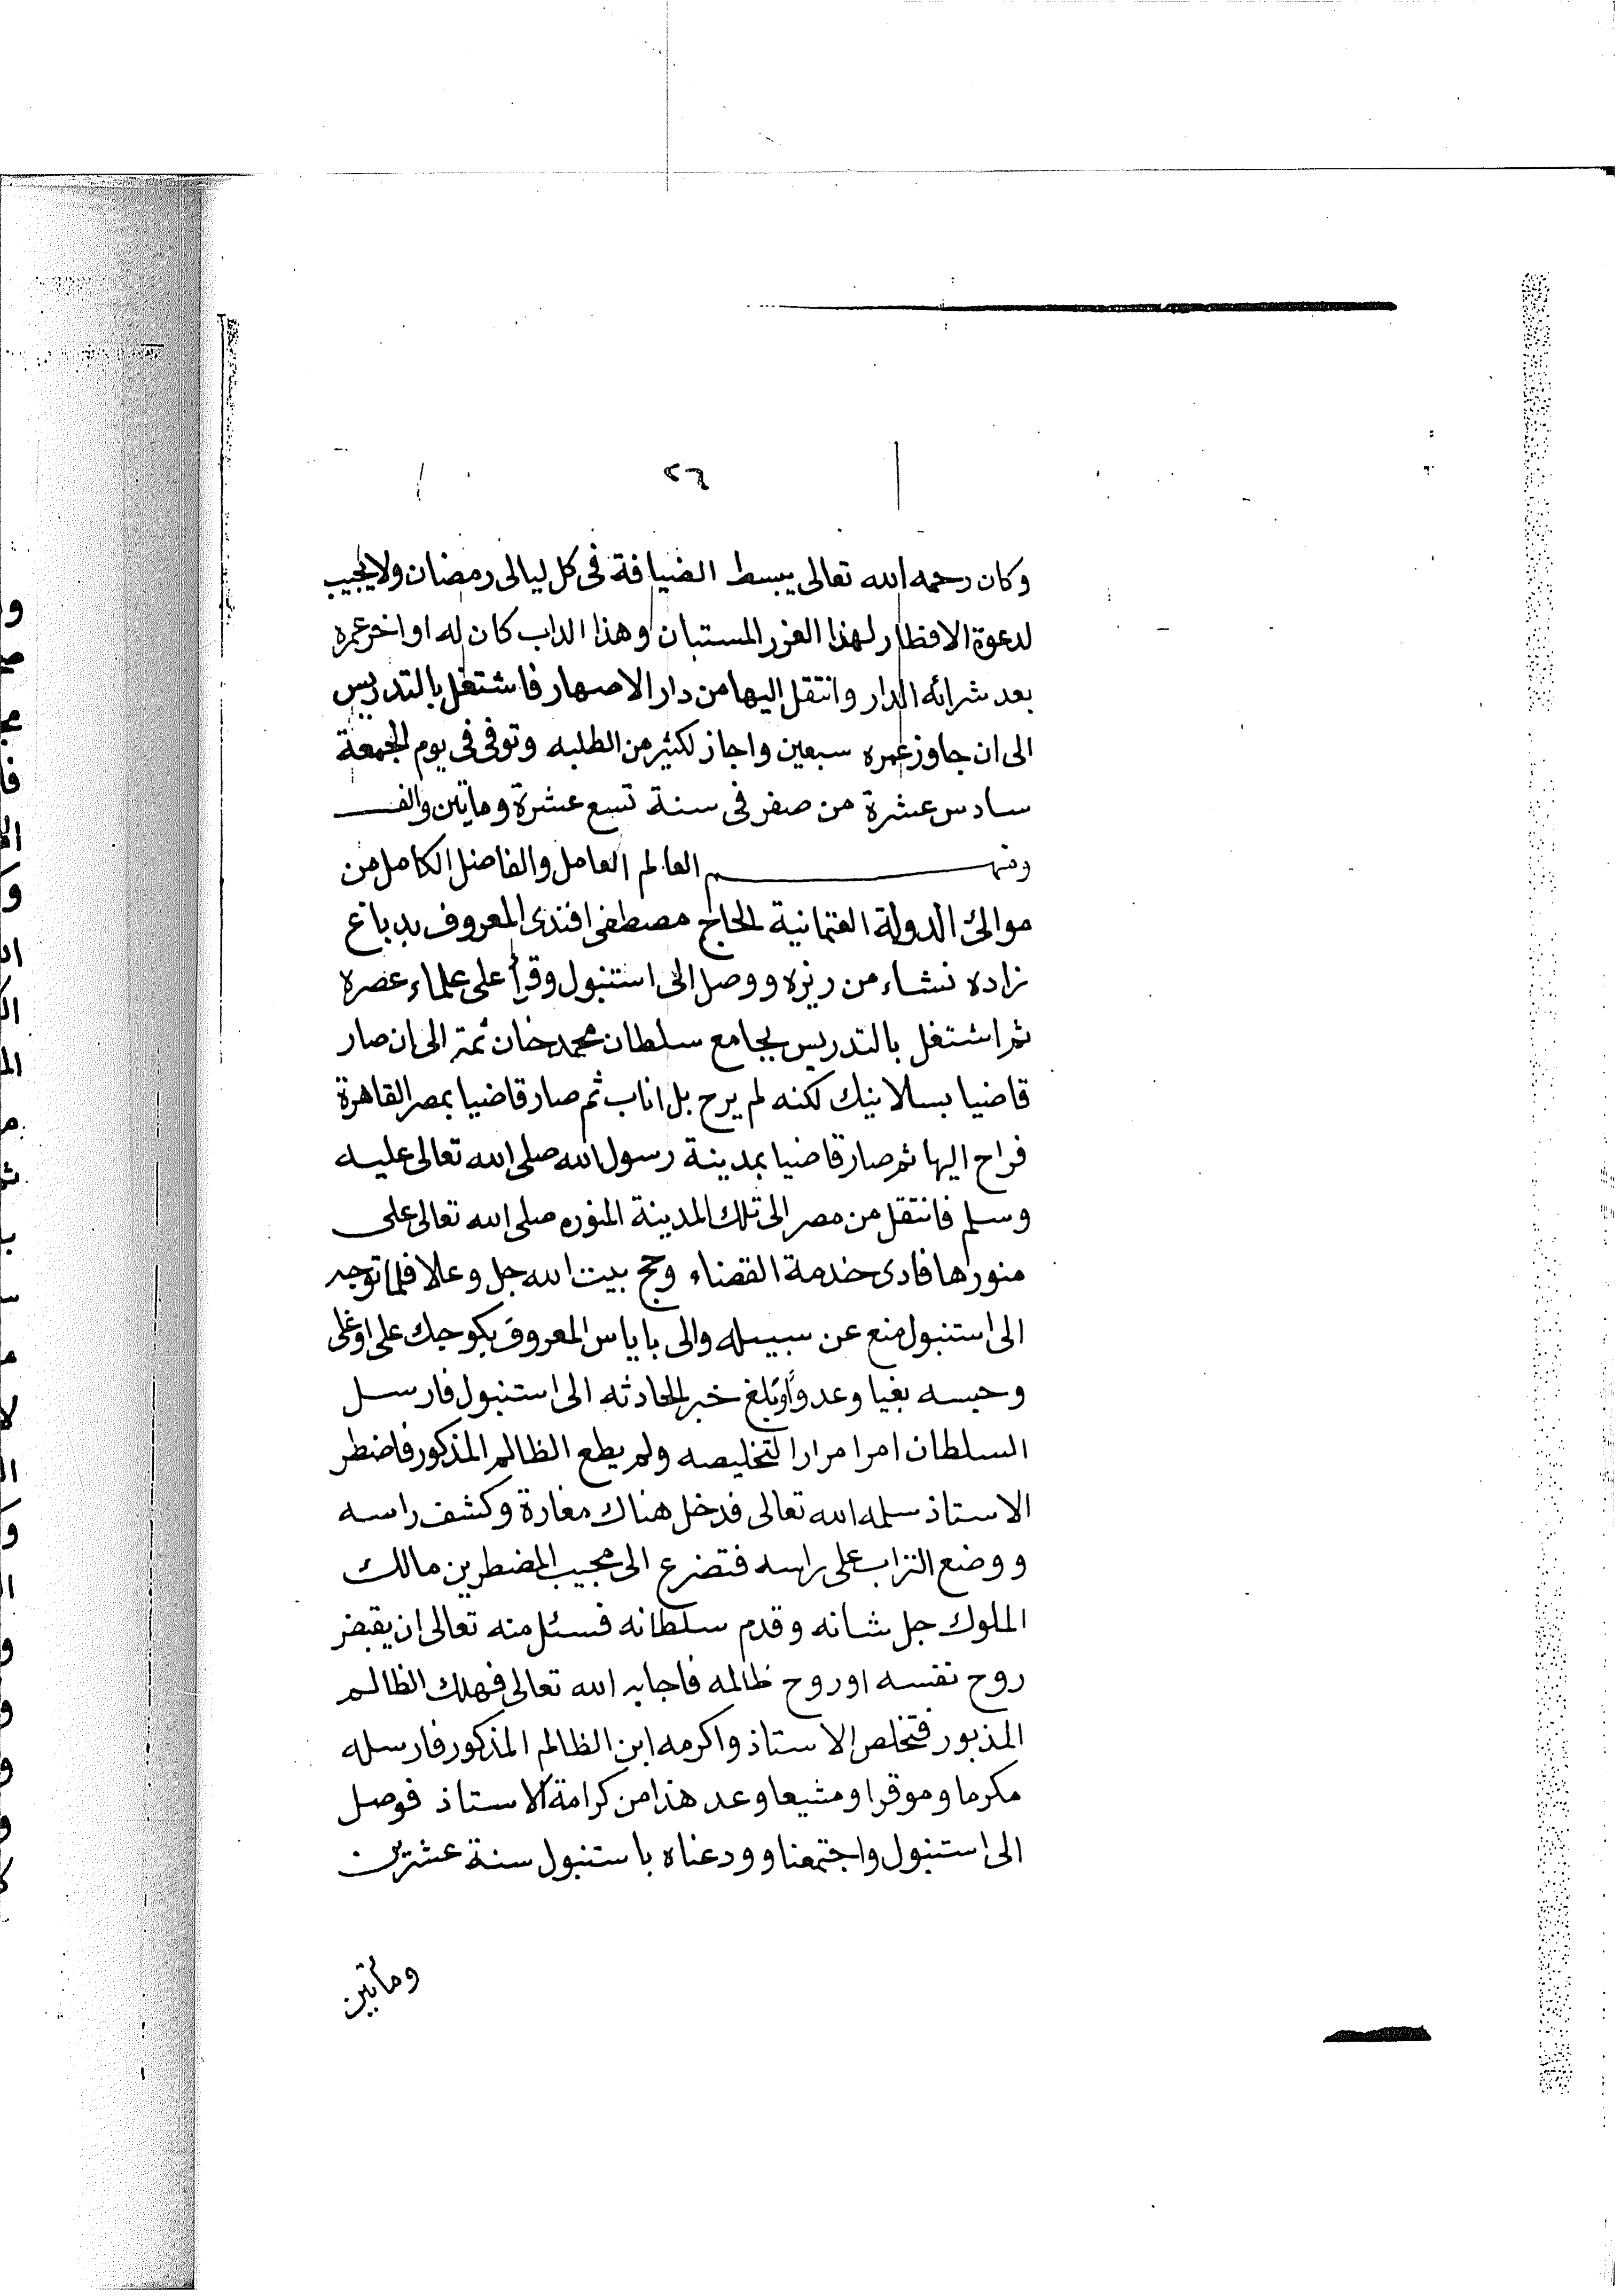 ٢٦
وكان رحمه الله تعالى يبسط الضيافة فى كل ليالى رمضان ولايجيب
لدعوة الافطار لهذا العزر المستبان وهذا الداب كان له اواخر عمره
بعد شرائه الدار وانتقل اليها من دار الاصهار فاشتغل بالتدريس
الى ان جاوز عمره سبعين واجاز لكثير من الطلبه وتوفى فى يوم الجمعة
سادس عشرة من صفر فى سنة تسع عشرة وماتين والف
ومنهم العالم العامل والفاضل الكامل من
موالى الدولة العثمانية الحاج مصطفى افندى المعروف بدباغ
زاده نشاء من ريزه ووصل الى استنبول وقرأ على علماء عصره
ثم اشتغل بالتدريس بجامع سلطان محمد خان ثمة الى ان صار
قاضيا بسلانيك لكنه لم يرح بل اناب ثم صار قاضيا بمصر القاهرة
فراح اليها ثم صار قاضيا بمدينة رسول الله صلى الله تعالى عليه
وسلم فانتقل من مصر الى تلك المدينة المنوره صلى الله تعالى على
منورها فادى خدمة القضاء وحج بيت الله جل وعلا فلما توجه
الى استنبول منع عن سبيله والى باياس المعروف بكوجك على اوغلى
وحبسه بغيا وعدوا وبلغ خبر الحادثه الى استنبول فارسل
السلطان امرا مرارا لتخليصه ولم يطع الظالم المذكور فاضطر
الاستاذ سلمه الله تعالى فدخل هناك مغارة وكشف راسه
ووضع التراب على راسه فتضرع الى مجيب المضطرين مالك
الملوك جل شانه وقدم سلطانه فسئل منه تعالى ان يقبض
روح نفسه او روح ظالمه فاجابه الله تعالى فهلك الظالم
المذبور فتخلص الاستاذ واكرمه ابن الظالم المذكور فارسله
مكرما وموقرا ومشيعا وعد هذا من كرامة الاستاذ فوصل
الى استنبول واجتمعنا وودعناه باستنبول سنة عشرين
ومأتين